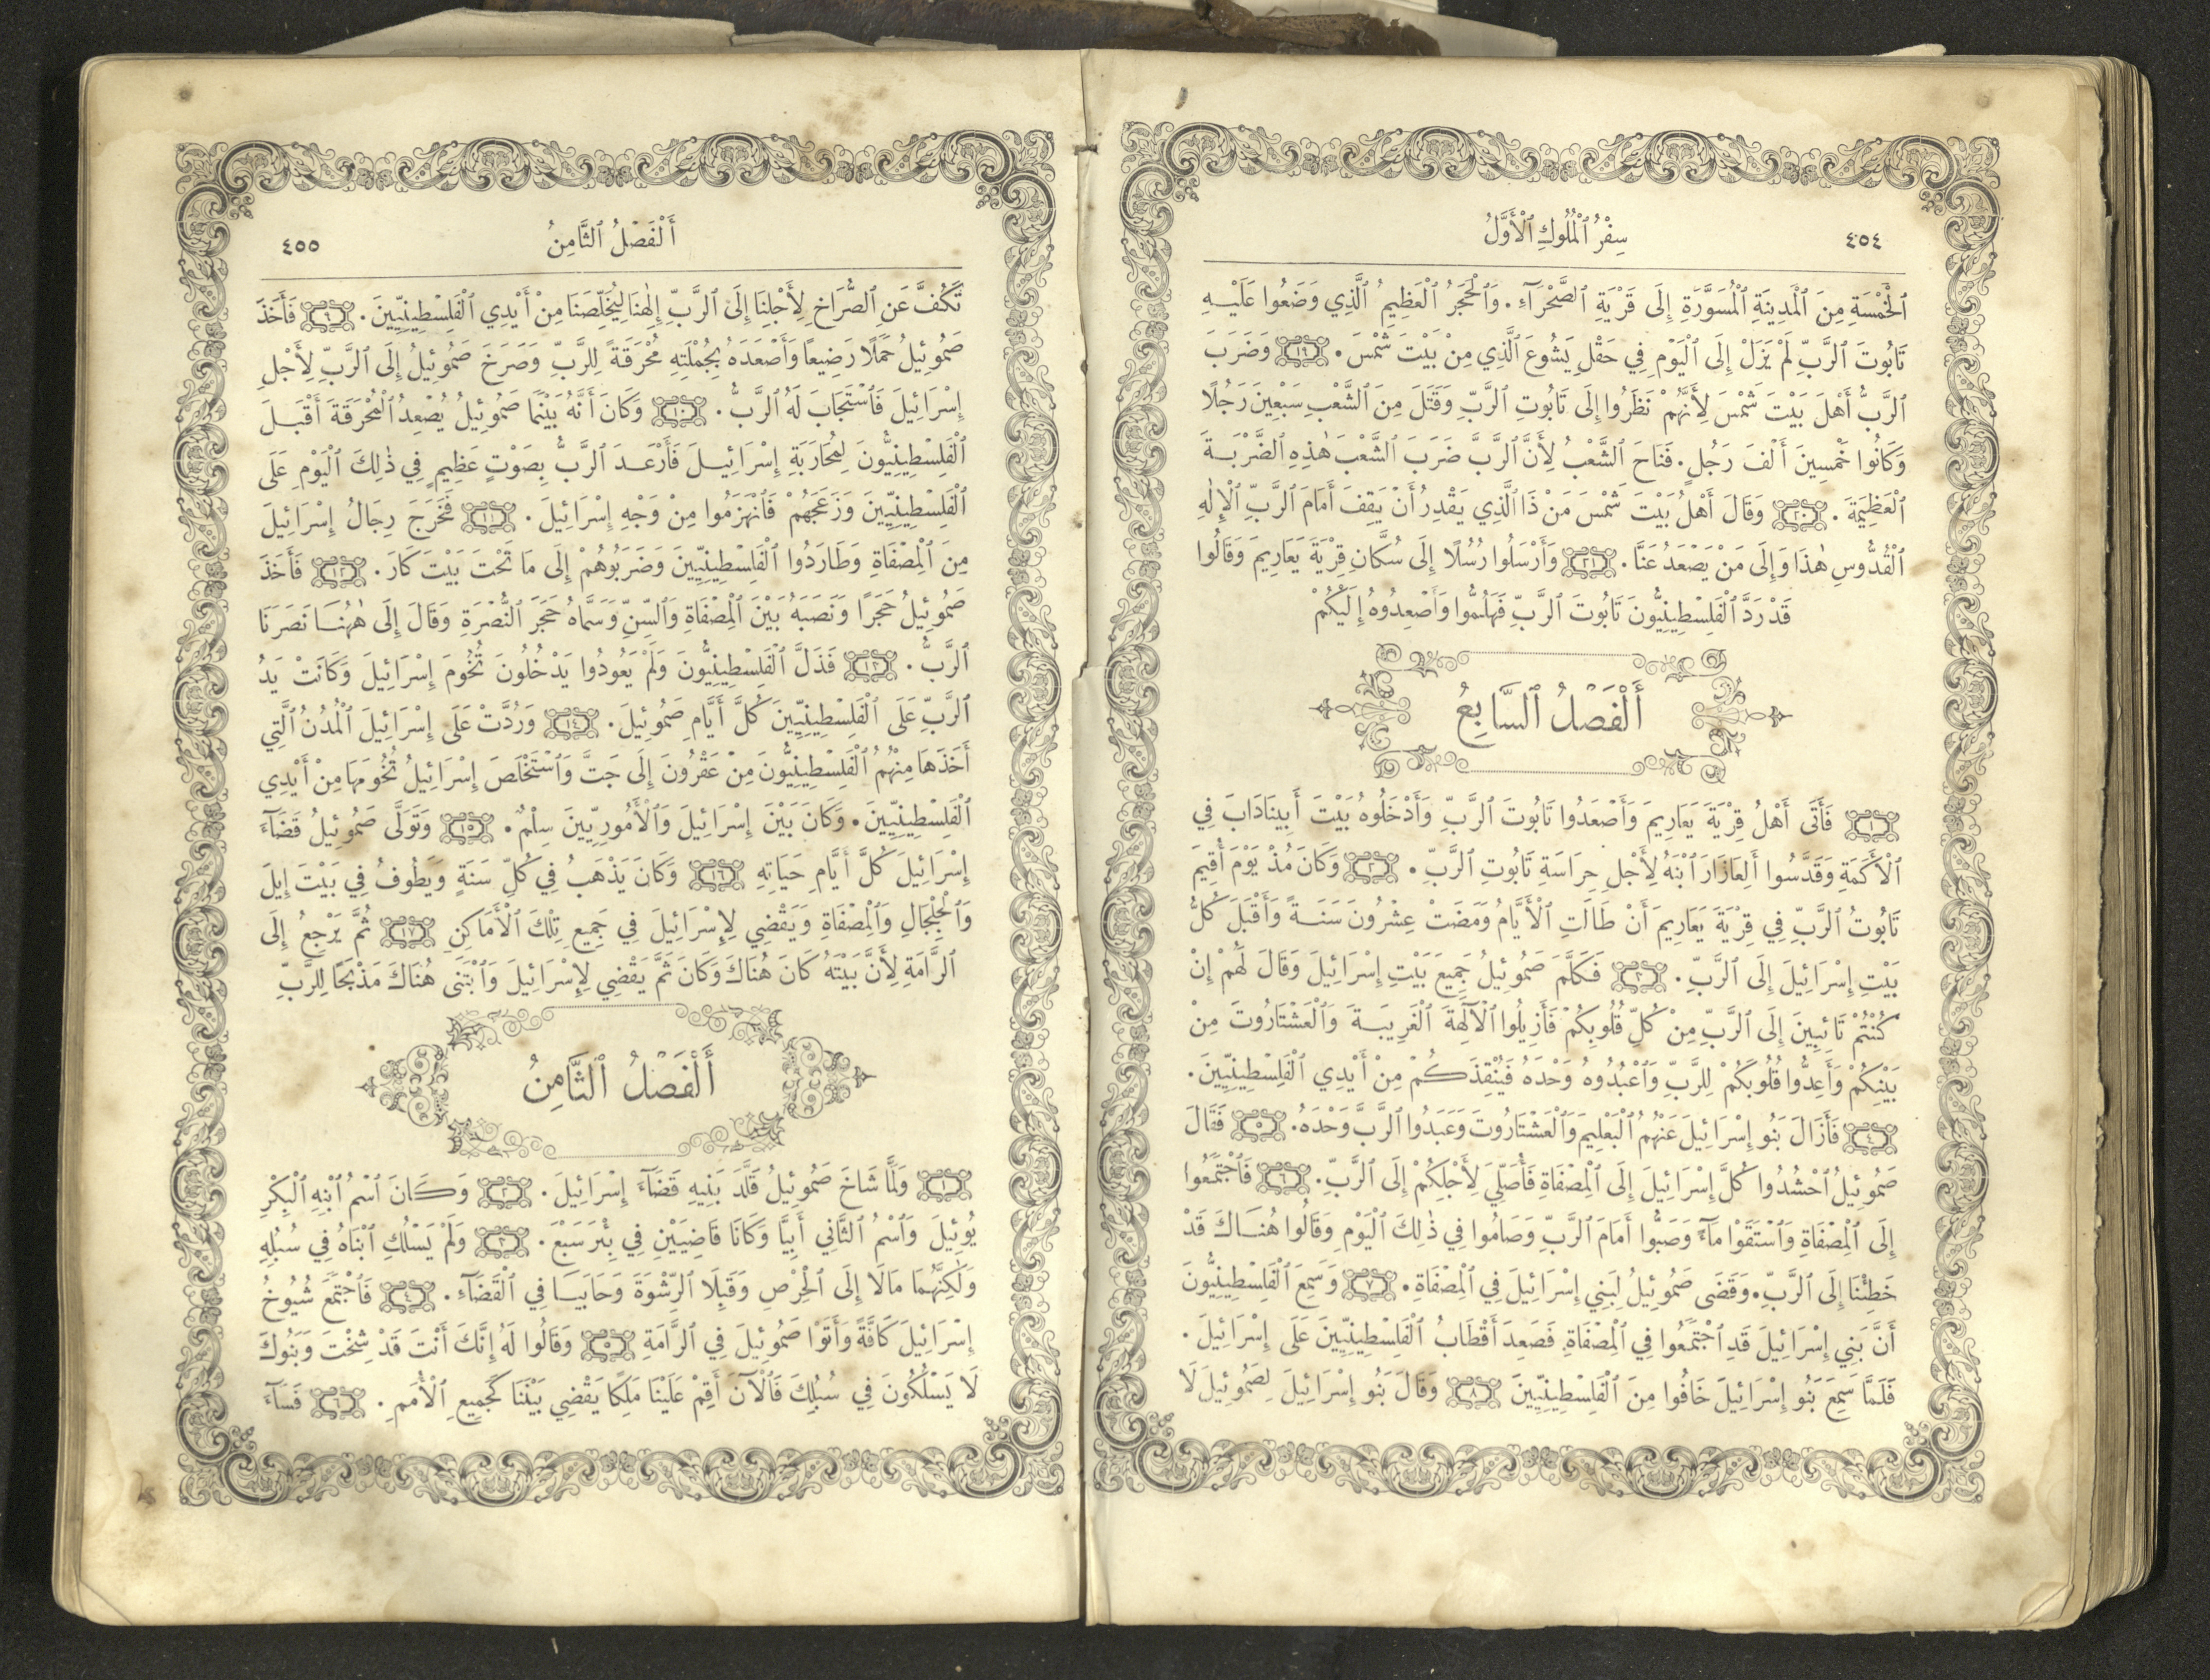 ٤٥٤
سِفْرُ ٱلْمُلُوكِ ٱلْأَوَّلُ
ٱلْخَمْسَةِ مِنَ ٱلْمَدِينَةِ ٱلْمُسَوَّرَةِ إِلَى قَرْيَةِ ٱلصَّحْرَآءِ. وَٱلْحَجَرُ ٱلْعَظِيمُ ٱلَّذِي وَضَعُوا عَلَيْهِ
تَابُوتَ ٱلرَّبِّ لَمْ يَزَلْ إِلَى ٱلْيَوْمِ فِي حَقْلِ يَشُوعَ ٱلَّذِي مِنْ بَيْتَ شَمْسَ. ١٩ وَضَرَبَ
ٱلرَّبُّ أَهْلَ بَيْتَ شَمْسَ لِأَنَّهُمْ نَظَرُوا إِلَى تَابُوتِ ٱلرَّبِّ وَقَتَلَ مِنَ ٱلشَّعْبِ سَبْعِينَ رَجُلًا
وَكَانُوا خَمْسِينَ أَلْفَ رَجُلٍ. فَنَاحَ ٱلشَّعْبُ لِأَنَّ ٱلرَّبَّ ضَرَبَ ٱلشَّعْبَ هٰذِهِ ٱلضَّرْبَةَ
ٱلْعَظِيمَةَ. ٢٠ وَقَالَ أَهْلُ بَيْتَ شَمْسَ مَنْ ذَا ٱلَّذِي يَقْدِرُ أَنْ يَقِفَ أَمَامَ ٱلرَّبِّ ٱلْإِلٰهِ
ٱلْقُدُّوسِ هٰذَا وَإِلَى مَنْ يَصْعَدُ عَنَّا. ٢١ وَأَرْسَلُوا رُسُلًا إِلَى سُكَّانِ قِرْيَةَ يَعَارِيمَ وَقَالُوا
قَدْ رَدَّ ٱلْفَلِسْطِينِيُّونَ تَابُوتَ ٱلرَّبِّ فَهَلُمُّوا وَأَصْعِدُوهُ إِلَيْكُمْ
أَلْفَصْلُ ٱلسَّابِعُ
١ فَأَتَى أَهْلُ قِرْيَةَ يَعَارِيمَ وَأَصْعَدُوا تَابُوتَ ٱلرَّبِّ وَأَدْخَلُوهُ بَيْتَ أَبِينَادَابَ فِي
ٱلْأَكَمَةِ وَقَدَّسُوا أَلِعَازَارَ ٱبْنَهُ لِأَجْلِ حِرَاسَةِ تَابُوتِ ٱلرَّبِّ. ٢ وَكَانَ مُذْ يَوْمَ أُقِيمَ
تَابُوتُ ٱلرَّبِّ فِي قِرْيَةَ يَعَارِيمَ أَنْ طَالَتِ ٱلْأَيَّامُ وَمَضَتْ عِشْرُونَ سَنَةً وَأَقْبَلَ كُلُّ
بَيْتِ إِسْرَائِيلَ إِلَى ٱلرَّبِّ. ٣ فَكَلَّمَ صَمُوئِيلُ جَمِيعَ بَيْتِ إِسْرَائِيلَ وَقَالَ لَهُمْ إِنْ
كُنْتُمْ تَائِبِينَ إِلَى ٱلرَّبِّ مِنْ كُلِّ قُلُوبِكُمْ فَأَزِيلُوا ٱلْآلِهَةَ ٱلْغَرِيبَةَ وَٱلْعَشْتَارُوتَ مِنْ
بَيْنِكُمْ وَأَعِدُّوا قُلُوبَكُمْ لِلرَّبِّ وَٱعْبُدُوهُ وَحْدَهُ فَيُنْقِذَكُمْ مِنْ أَيْدِي ٱلْفَلِسْطِينِيِّينَ.
٤ فَأَزَالَ بَنُو إِسْرَائِيلَ عَنْهُمُ ٱلْبَعْلِيمَ وَٱلْعَشْتَارُوتَ وَعَبَدُوا ٱلرَّبَّ وَحْدَهُ. ٥ فَقَالَ
صَمُوئِيلُ ٱحْشُدُوا كُلَّ إِسْرَائِيلَ إِلَى ٱلْمِصْفَاةِ فَأُصَلِّيَ لِأَجْلِكُمْ إِلَى ٱلرَّبِّ. ٦ فَٱجْتَمَعُوا
إِلَى ٱلْمِصْفَاةِ وَٱسْتَقَوْا مَآءً وَصَبُّوا أَمَامَ ٱلرَّبِّ وَصَامُوا فِي ذٰلِكَ ٱلْيَوْمِ وَقَالُوا هُنَاكَ قَدْ
خَطِئْنَا إِلَى ٱلرَّبِّ. وَقَضَى صَمُوئِيلُ لِبَنِي إِسْرَائِيلَ فِي ٱلْمِصْفَاةِ. ٧ وَسَمِعَ ٱلْفَلِسْطِينِيُّونَ
أَنَّ بَنِي إِسْرَائِيلَ قَدِ ٱجْتَمَعُوا فِي ٱلْمِصْفَاةِ فَصَعِدَ أَقْطَابُ ٱلْفَلِسْطِينِيِّينَ عَلَى إِسْرَائِيلَ.
فَلَمَّا سَمِعَ بَنُو إِسْرَائِيلَ خَافُوا مِنَ ٱلْفَلِسْطِينِيِّينَ ٨ وَقَالَ بَنُو إِسْرَائِيلَ لِصَمُوئِيلَ لَا
أَلْفَصْلُ ٱلثَّامِنُ
٤٥٥
تَكُفَّ عَنِ ٱلصُّرَاخِ لِأَجْلِنَا إِلَى ٱلرَّبِّ إِلٰهِنَا لِيُخَلِّصَنَا مِنْ أَيْدِي ٱلْفَلِسْطِينِيِّينَ. ٩ فَأَخَذَ
صَمُوئِيلُ حَمَلًا رَضِيعًا وَأَصْعَدَهُ بِجُمْلَتِهِ مُحْرَقَةً لِلرَّبِّ وَصَرَخَ صَمُوئِيلُ إِلَى ٱلرَّبِّ لِأَجْلِ
إِسْرَائِيلَ فَٱسْتَجَابَ لَهُ ٱلرَّبُّ. ١٠ وَكَانَ أَنَّهُ بَيْنَمَا صَمُوئِيلُ يُصْعِدُ ٱلْمُحْرَقَةَ أَقْبَلَ
ٱلْفَلِسْطِينِيُّونَ لِمُحَارَبَةِ إِسْرَائِيلَ فَأَرْعَدَ ٱلرَّبُّ بِصَوْتٍ عَظِيمٍ فِي ذٰلِكَ ٱلْيَوْمِ عَلَى
ٱلْفَلِسْطِينِيِّينَ وَزَعَجَهُمْ فَٱنْهَزَمُوا مِنْ وَجْهِ إِسْرَائِيلَ. ١١ فَخَرَجَ رِجَالُ إِسْرَائِيلَ
مِنَ ٱلْمِصْفَاةِ وَطَارَدُوا ٱلْفَلِسْطِينِيِّينَ وَضَرَبُوهُمْ إِلَى مَا تَحْتَ بَيْتَ كَارَ. ١٢ فَأَخَذَ
صَمُوئِيلُ حَجَرًا وَنَصَبَهُ بَيْنَ ٱلْمِصْفَاةِ وَٱلسِّنِّ وَسَمَّاهُ حَجَرَ ٱلنُّصْرَةِ وَقَالَ إِلَى هٰهُنَا نَصَرَنَا
ٱلرَّبُّ. ١٣ فَذَلَّ ٱلْفَلِسْطِينِيُّونَ وَلَمْ يَعُودُوا يَدْخُلُونَ تُخُومَ إِسْرَائِيلَ وَكَانَتْ يَدُ
ٱلرَّبِّ عَلَى ٱلْفَلِسْطِينِيِّينَ كُلَّ أَيَّامِ صَمُوئِيلَ. ١٤ وَرُدَّتْ عَلَى إِسْرَائِيلَ ٱلْمُدُنُ ٱلَّتِي
أَخَذَهَا مِنْهُمُ ٱلْفَلِسْطِينِيُّونَ مِنْ عَقْرُونَ إِلَى جَتَّ وَٱسْتَخْلَصَ إِسْرَائِيلُ تُخُومَهَا مِنْ أَيْدِي
ٱلْفَلِسْطِينِيِّينَ. وَكَانَ بَيْنَ إِسْرَائِيلَ وَٱلْأَمُورِيِّينَ سِلْمٌ. ١٥ وَتَوَلَّى صَمُوئِيلُ قَضَآءَ
إِسْرَائِيلَ كُلَّ أَيَّامِ حَيَاتِهِ ١٦ وَكَانَ يَذْهَبُ فِي كُلِّ سَنَةٍ وَيَطُوفُ فِي بَيْتَ إِيلَ
وَٱلْجِلْجَالِ وَٱلْمِصْفَاةِ وَيَقْضِي لِإِسْرَائِيلَ فِي جَمِيعِ تِلْكَ ٱلْأَمَاكِنِ ١٧ ثُمَّ يَرْجِعُ إِلَى
ٱلرَّامَةِ لِأَنَّ بَيْتَهُ كَانَ هُنَاكَ وَكَانَ ثَمَّ يَقْضِي لِإِسْرَائِيلَ وَٱبْتَنَى هُنَاكَ مَذْبَحًا لِلرَّبِّ
أَلْفَصْلُ ٱلثَّامِنُ
١ وَلَمَّا شَاخَ صَمُوئِيلُ قَلَّدَ بَنِيهِ قَضَآءَ إِسْرَائِيلَ. ٢ وَكَانَ ٱسْمُ ٱبْنِهِ ٱلْبِكْرِ
يُوئِيلَ وَٱسْمُ ٱلثَّانِي أَبِيَّا وَكَانَا قَاضِيَيْنِ فِي بِئْرَ سَبْعَ. ٣ وَلَمْ يَسْلُكِ ٱبْنَاهُ فِي سُبُلِهِ
وَلٰكِنَّهُمَا مَالَا إِلَى ٱلْحِرْصِ وَقَبِلَا ٱلرِّشْوَةَ وَحَابَيَا فِي ٱلْقَضَآءِ. ٤ فَٱجْتَمَعَ شُيُوخُ
إِسْرَائِيلَ كَافَّةً وَأَتَوْا صَمُوئِيلَ فِي ٱلرَّامَةِ ٥ وَقَالُوا لَهُ إِنَّكَ أَنْتَ قَدْ شِخْتَ وَبَنُوكَ
لَا يَسْلُكُونَ فِي سُبُلِكَ فَٱلْآنَ أَقِمْ عَلَيْنَا مَلِكًا يَقْضِي بَيْنَنَا كَجَمِيعِ ٱلْأُمَمِ. ٦ فَسَآءَ